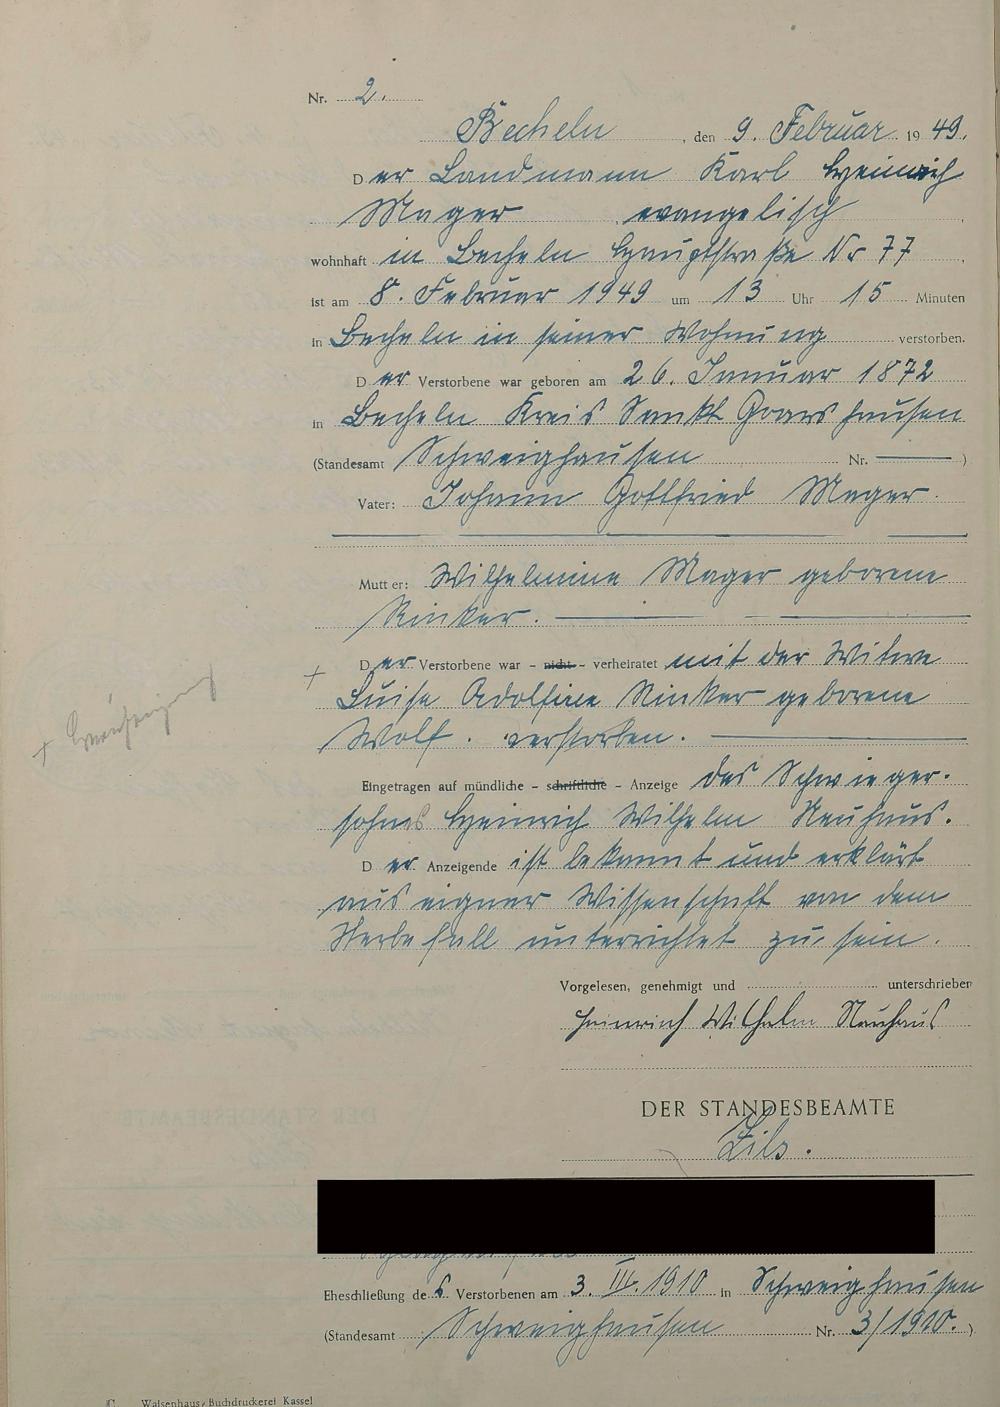 Nr. 2.
Becheln, den 9. Februar 1949.
Der Landmann Karl Heinrich
Mager evangelisch
wohnhaft in Becheln Hauptstraße Nr 77
ist am 8. Februar 1949 um 13 Uhr 15 Minuten
in Becheln in seiner Wohnung verstorben.
Der Verstorbene war geboren am 26. Januar 1872
in Becheln Kreis Sankt Goarshausen
(Standesamt Schweighausen Nr. —)
Vater: Johann Gottfried Mager.
Mutter: Wilhelmine Mager geborene
Rinker.
+ Der Verstorbene war - nicht - verheiratet mit der Witwe
Luise Adolfine Rinker geborene
+
Wolf. verstorben.
Eingetragen auf mündliche - schriftliche - Anzeige des Schwieger-
sohnes Heinrich Wilhelm Neuhaus.
Der Anzeigende ist bekannt und erklärt
aus eigner Wissenschaft von dem
Sterbefall unterrichtet zu sein.
Vorgelesen, genehmigt und unterschrieben
Heinrich Wilhelm Neuhaus
DER STANDESBEAMTE
Eheschließung des Verstorbenen am 3. III. 1910 in Schweighausen
(Standesamt Schweighausen Nr. 3/1910.)
C. Waisenhaus-Buchdruckerei Kassel